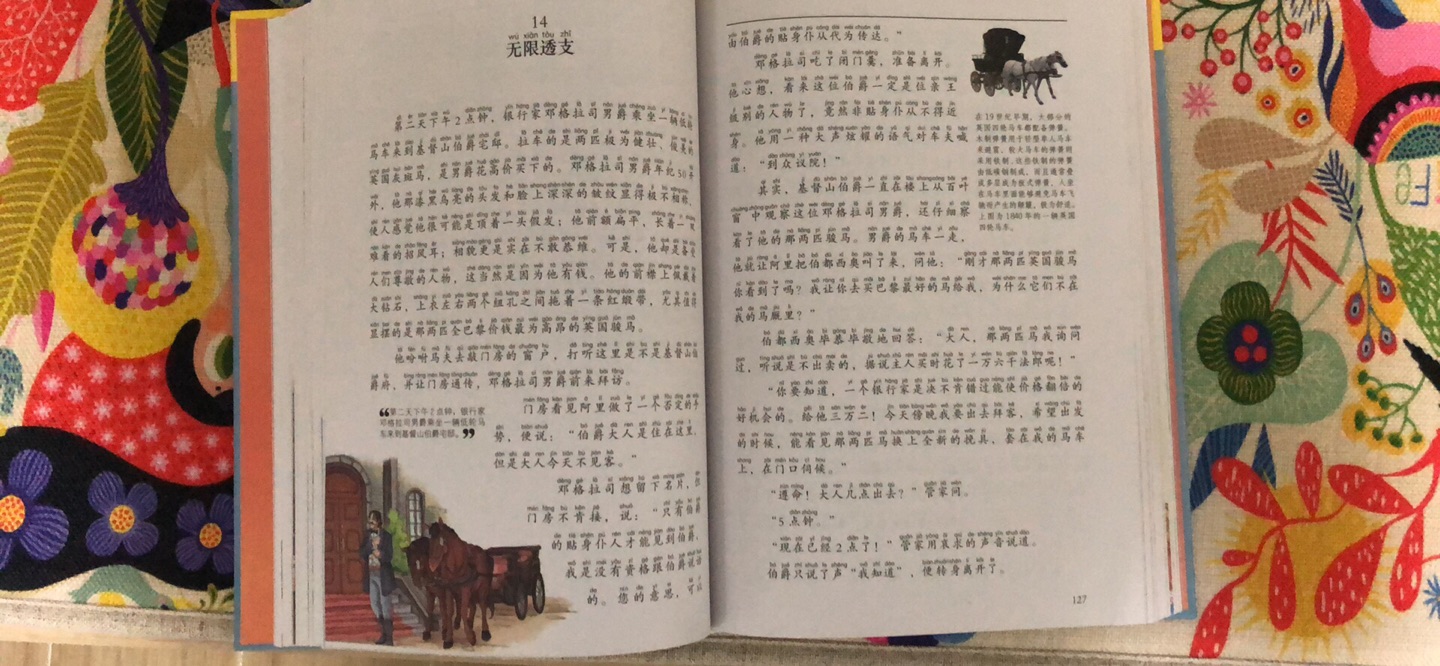 14
wú xiàn tòu zhī
无限透支
第二天下午2点钟，银行家邓格拉司男爵乘坐一辆低轮
马车来到基督山伯爵宅邸。拉车的是两匹极为健壮、俊美的
英国表斑马，是男爵花高价买下的。邓格拉司男爵年纪50开
外，他那漆黑乌亮的头发和脸上深深的皱纹显得极不相称，
使人感觉他很可能是顶着一头假发；他前额扁平，长着一双
难看的招风耳；相貌更是实在不敢恭维。可是，他却是备受
人们尊敬的人物，这当然是因为他有钱。他的前襟上佩戴着
大钻石，上衣左右两个纽孔之间拖着一条红缎带，尤其值得
显摆的是那两匹全巴黎价钱最为高昂的英国骏马。
他吩咐马夫去敲门房的窗户，打听这里是不是基督山伯
爵府，并让门房通传，邓格拉司男爵前来拜访。
门房看见阿里做了一个否定的手
势，便说：“伯爵大人是住在这里，
但是大人今天不见客。”
邓格拉司想留下名片，但
门房不肯接，说：“只有伯爵
的贴身仆人才能见到伯爵，
我是没有资格跟伯爵说话
的。您的意思，可以
❝第二天下午2点钟，银行家
邓格拉司男爵乘坐一辆低轮马
车来到基督山伯爵宅邸。❞
由伯爵的贴身仆从代为传达。”
邓格拉司吃了闭门羹，准备离开。
他心想，看来这位伯爵一定是位亲王
级别的人物了，竟然非贴身仆从不得近
身。他用一种大声炫耀的语气对车夫喊
道：“到众议院！”
其实，基督山伯爵一直在楼上从百叶
窗中观察这位邓格拉司男爵，还仔细察
看了他的那两匹骏马。男爵的马车一走，
他就让阿里把伯都西奥叫了来，问他：“刚才那两匹英国骏马
你看到了吗？我让你去买巴黎最好的马给我，为什么它们不在
我的马厩里？”
伯都西奥毕恭毕敬地回答：“大人，那两匹马我询问
过，听说是不出卖的，据说主人买时花了一万六千法郎呢！”
“你要知道，一个银行家是决不肯错过能使价格翻倍的
好机会的。给他三万二！今天傍晚我要出去拜客，希望出发
的时候，能看见那两匹马换上全新的挽具，套在我的马车
上，在门口伺候。”
“遵命！大人几点出去？”管家问。
“5点钟。”
“现在已经2点了！”管家用哀求的声音说道。
伯爵只说了声“我知道”，便转身离开了。
在19世纪早期，大部分的
英国四轮马车都配备弹簧。
木制弹簧用于轻型单人马车
来避震，较大马车的弹簧则
采用铁制。这些铁制的弹簧
由低碳钢制成，而且通常叠
放多层成为板式弹簧，人坐
在马车里面能够避免马车飞
驰所产生的颠簸，极为舒适。
上图为1840年的一辆英国
四轮马车。
127